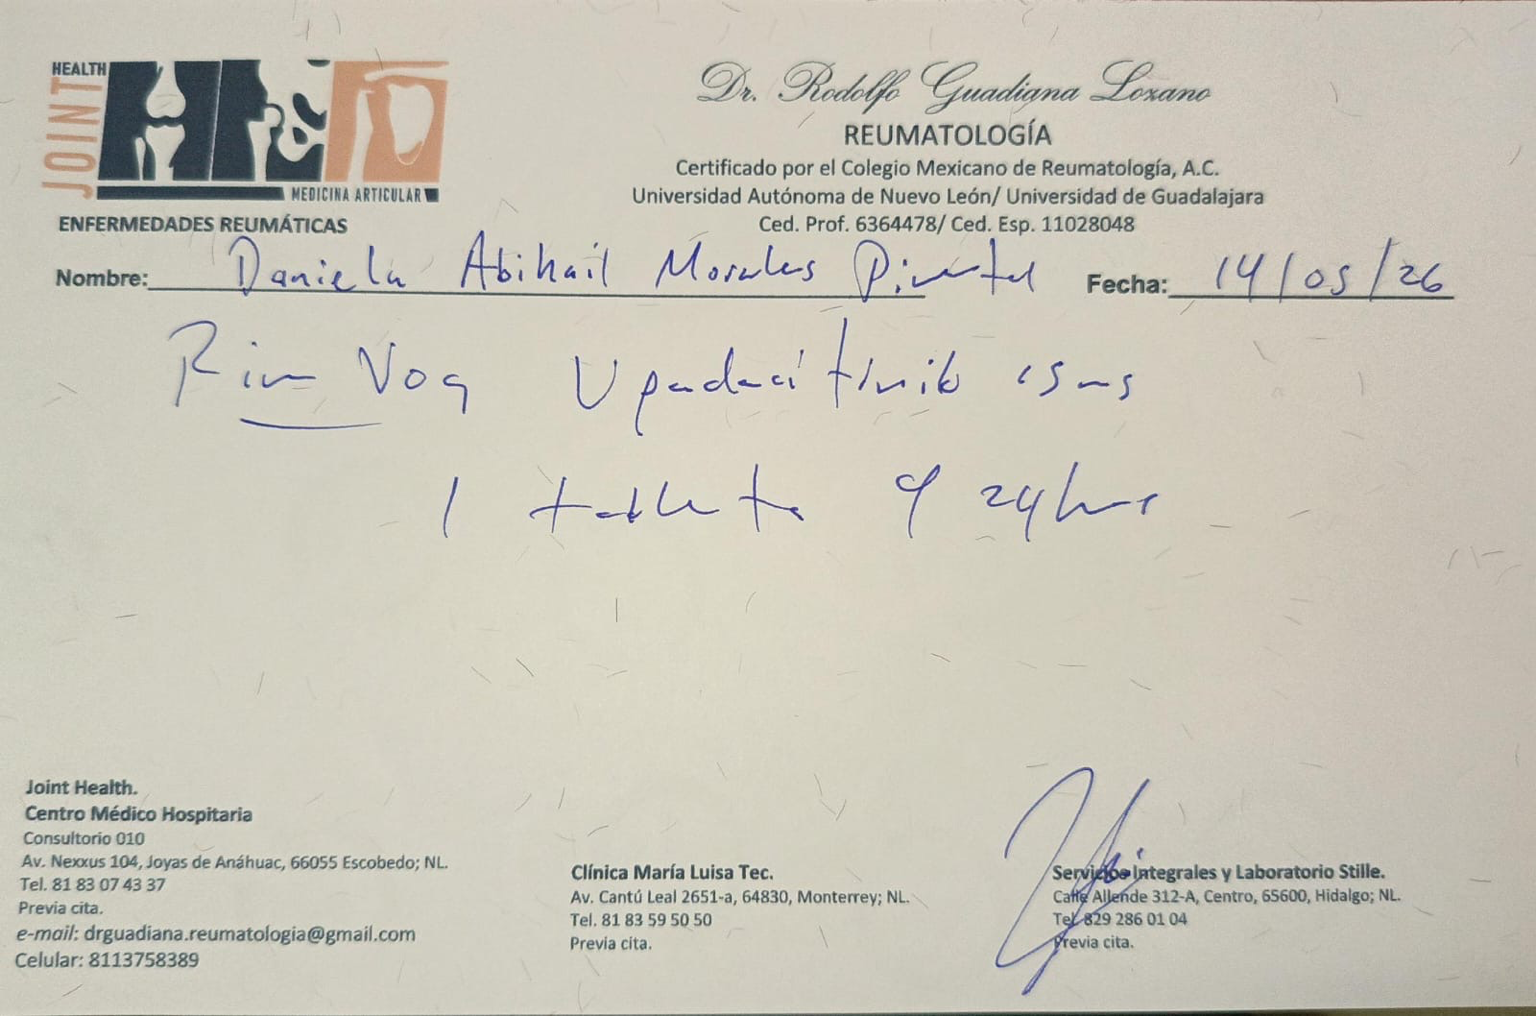 HEALTH
JOINT
MEDICINA ARTICULAR
ENFERMEDADES REUMÁTICAS
Dr. Rodolfo Guadiana Lozano
REUMATOLOGÍA
Certificado por el Colegio Mexicano de Reumatología, A.C.
Universidad Autónoma de Nuevo León/ Universidad de Guadalajara
Ced. Prof. 6364478/ Ced. Esp. 11028048
Nombre: Daniela Abihail Morales Pimentel Fecha: 14/05/26
Rinvoq Upadacitinib 15mg
1 tableta q 24hrs
Joint Health.
Centro Médico Hospitaria
Consultorio 010
Av. Nexxus 104, Joyas de Anáhuac, 66055 Escobedo; NL.
Tel. 81 83 07 43 37
Previa cita.
e-mail: drguadiana.reumatologia@gmail.com
Celular: 8113758389
Clínica María Luisa Tec.
Av. Cantú Leal 2651-a, 64830, Monterrey; NL.
Tel. 81 83 59 50 50
Previa cita.
Servicios Integrales y Laboratorio Stille.
Calle Allende 312-A, Centro, 65600, Hidalgo; NL.
Tel. 829 286 01 04
Previa cita.